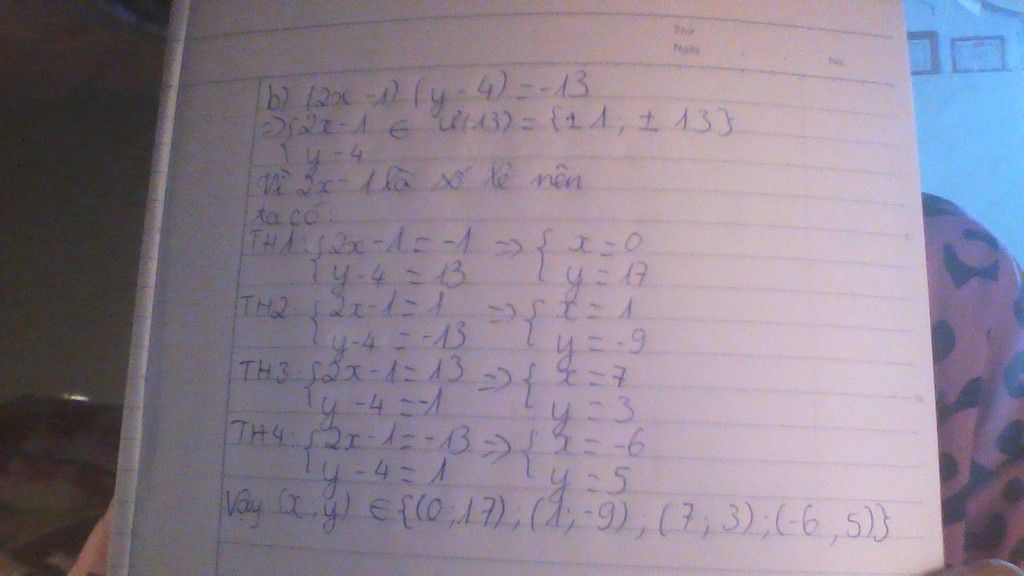 Thứ
Ngày
No.
b) (2x - 1) (y - 4) = -13
=> { 2x - 1 ∈ Ư(13) = {± 1 ; ± 13}
{ y - 4
Vì 2x - 1 là số lẻ nên
ta có :
TH1: { 2x - 1 = -1 => { x = 0
{ y - 4 = 13 { y = 17
TH2: { 2x - 1 = 1 => { x = 1
{ y - 4 = -13 { y = -9
TH3: { 2x - 1 = 13 => { x = 7
{ y - 4 = -1 { y = 3
TH4: { 2x - 1 = -13 => { x = -6
{ y - 4 = 1 { y = 5
Vậy (x, y) ∈ {(0; 17) ; (1; -9) ; (7; 3) ; (-6; 5)}